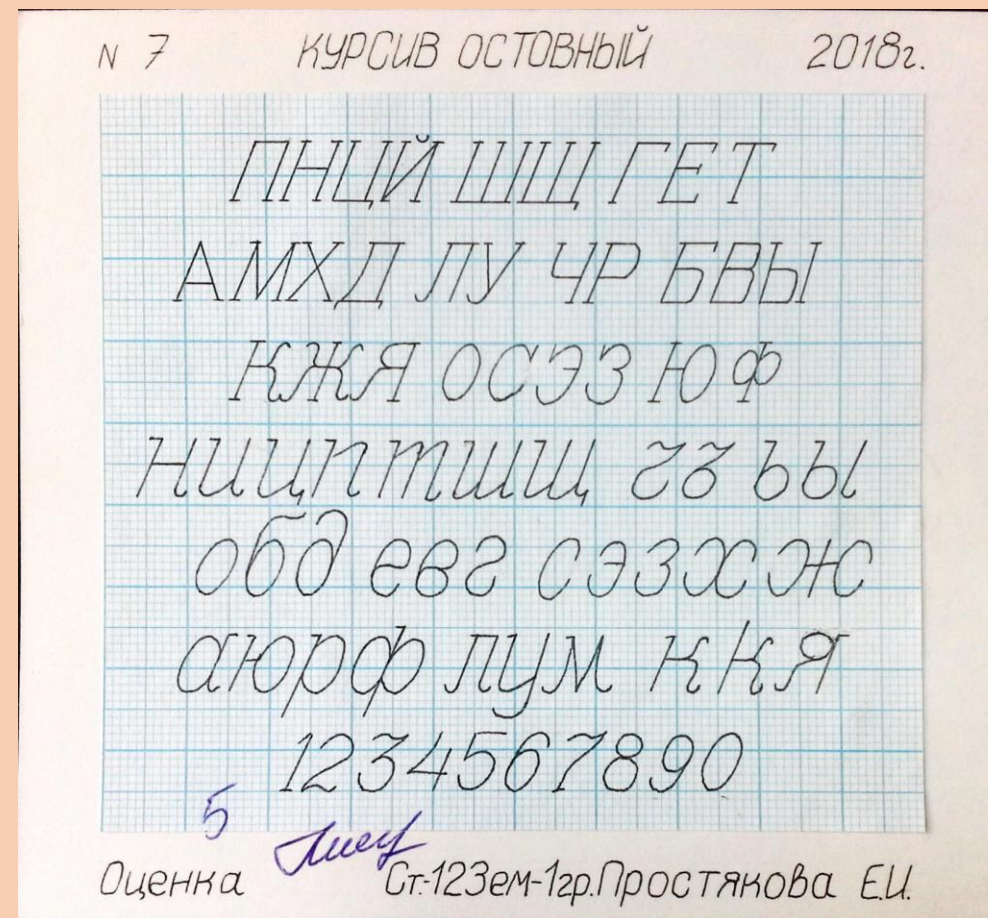 N 7 КУРСИВ ОСТОВНЫЙ 2018г.
ПНЦЙ ШЩ ГЕТ
АМХД ЛУ ЧР БВЫ
КЖЯ ОСЭЗ ЮФ
ницптшщ гъ ьы
обд евг сэзхж
аюрф лум ккя
1234567890
5
Оценка Ст.-123ем-1гр.Простякова Е.И.